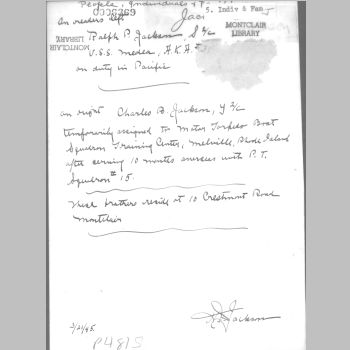 People, Individuals &
5. Indiv & Fam
Jac
MONTCLAIR
LIBRARY
MONTCLAIR
LIBRARY
On readers left
Ralph P. Jackson, S 2/c
U.S.S. Medea, A.K.A.
on duty in Pacific
On right Charles B. Jackson, Y 2/c
temporarily assigned to Motor Torpedo Boat
Squadron Training Center, Melville, Rhode Island
after serving 10 months overseas with P.T.
Squadron # 15.
These brothers reside at 10 Crestmont Road
Montclair
Jackson
3/21/45
P4815